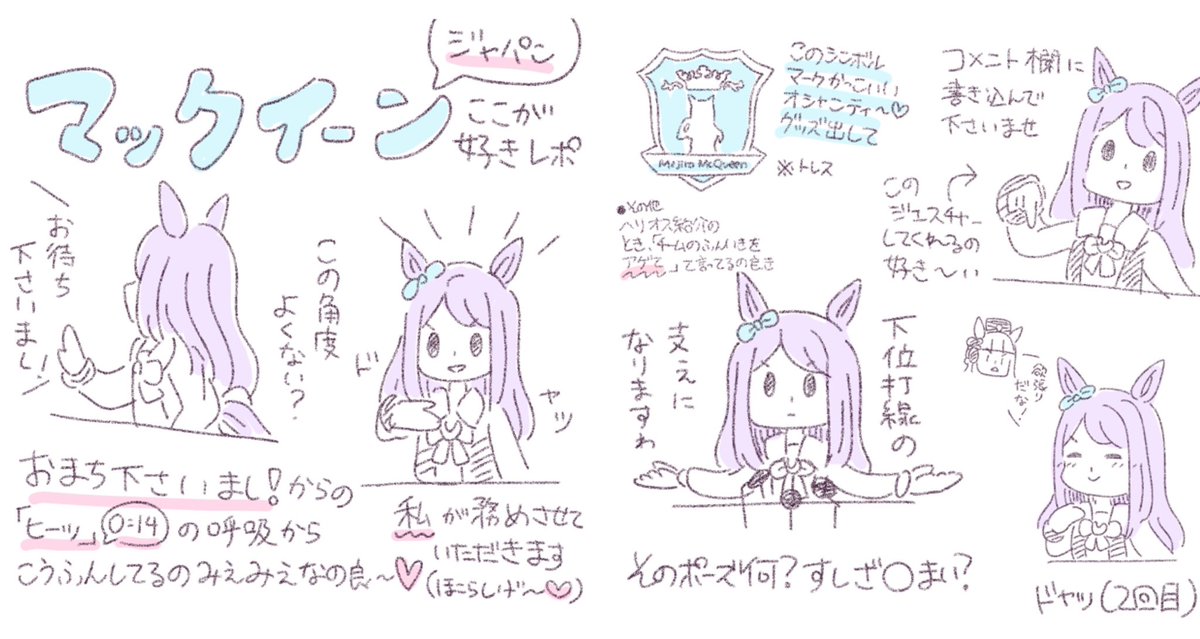 ジャパン
マックイーン
ここが
好きレポ
お待ち
下さいまし!
この角度
よくない?
ド
ヤッ
おまち下さいまし!からの
「ヒーッ」0:14の呼吸から
こうふんしてるのみえみえなの良〜♥
私が務めさせて
いただきます
(ほこらしげ〜♡)
Mejiro McQueen
このシンボル
マークかっこいい
オシャンティ〜♡
グッズ出して
※トレス
●その他
ヘリオス紹介の
とき、「チームのふんいきを
アゲて」って言ってるの良き
コメント欄に
書き込んで
下さいませ
この
ジェスチャー
してくれ〜るの
好き〜い
下位打線の
支えに
なりますわ
そのポーズ何?すしざ○まい?
欲張り
だな!
ドヤッ(2回目)